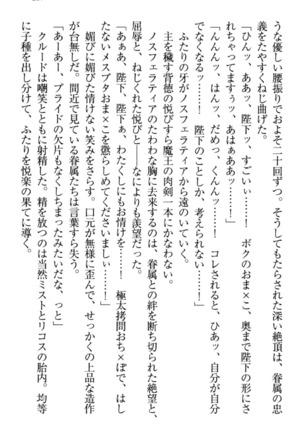 うな優しい腰振りでおよそ二十回ずつ。そうしてもたらされた深い絶頂は、眷属の忠
義をたやすくねじ曲げた。
「ひんッ、ああッ、陛下ッ、すごいぃ……！　ボクのおま×こ、奥まで陛下の形にさ
れちゃってますぅッ、あはぁああッ」
「んんんッ、はんッ、だめッ、くんんッ……！　コレされると、ひあッ、自分が自分
でなくなるッ……！　陛下のことしか、考えられない……！」
ふたりの牙がノスフェラティアから遠のいていく。
主を穢す背徳の悦びすら魔王の肉剣一本にかなわない。
ノスフェラティアのたわわな胸に去来するのは、眷属との絆を断ち切られた絶望と、
屈辱と、ねじくれた悦びと――なによりも羨望だった。
「あぁあ、陛下、陛下ぁ、わたくしにもお情けを……！　極太拷問おち×ぽで、はし
たないメスブタおま×こを懲らしめてくださいましぃ……！」
媚びに媚びた情けない笑みをさらす。口元が無様に歪んで、せっかくの上品な造作
が台無しだ。間近で見ている眷属たちは言葉すら失う。
「あーあー、プライドの欠片もなくしちまったみたいだな、っと」
クルードは嘲笑とともに射精した。精を放つのは当然ミストとリコスの胎内。均等
に子種を出し分けて、ふたりを悦楽の果てに導く。